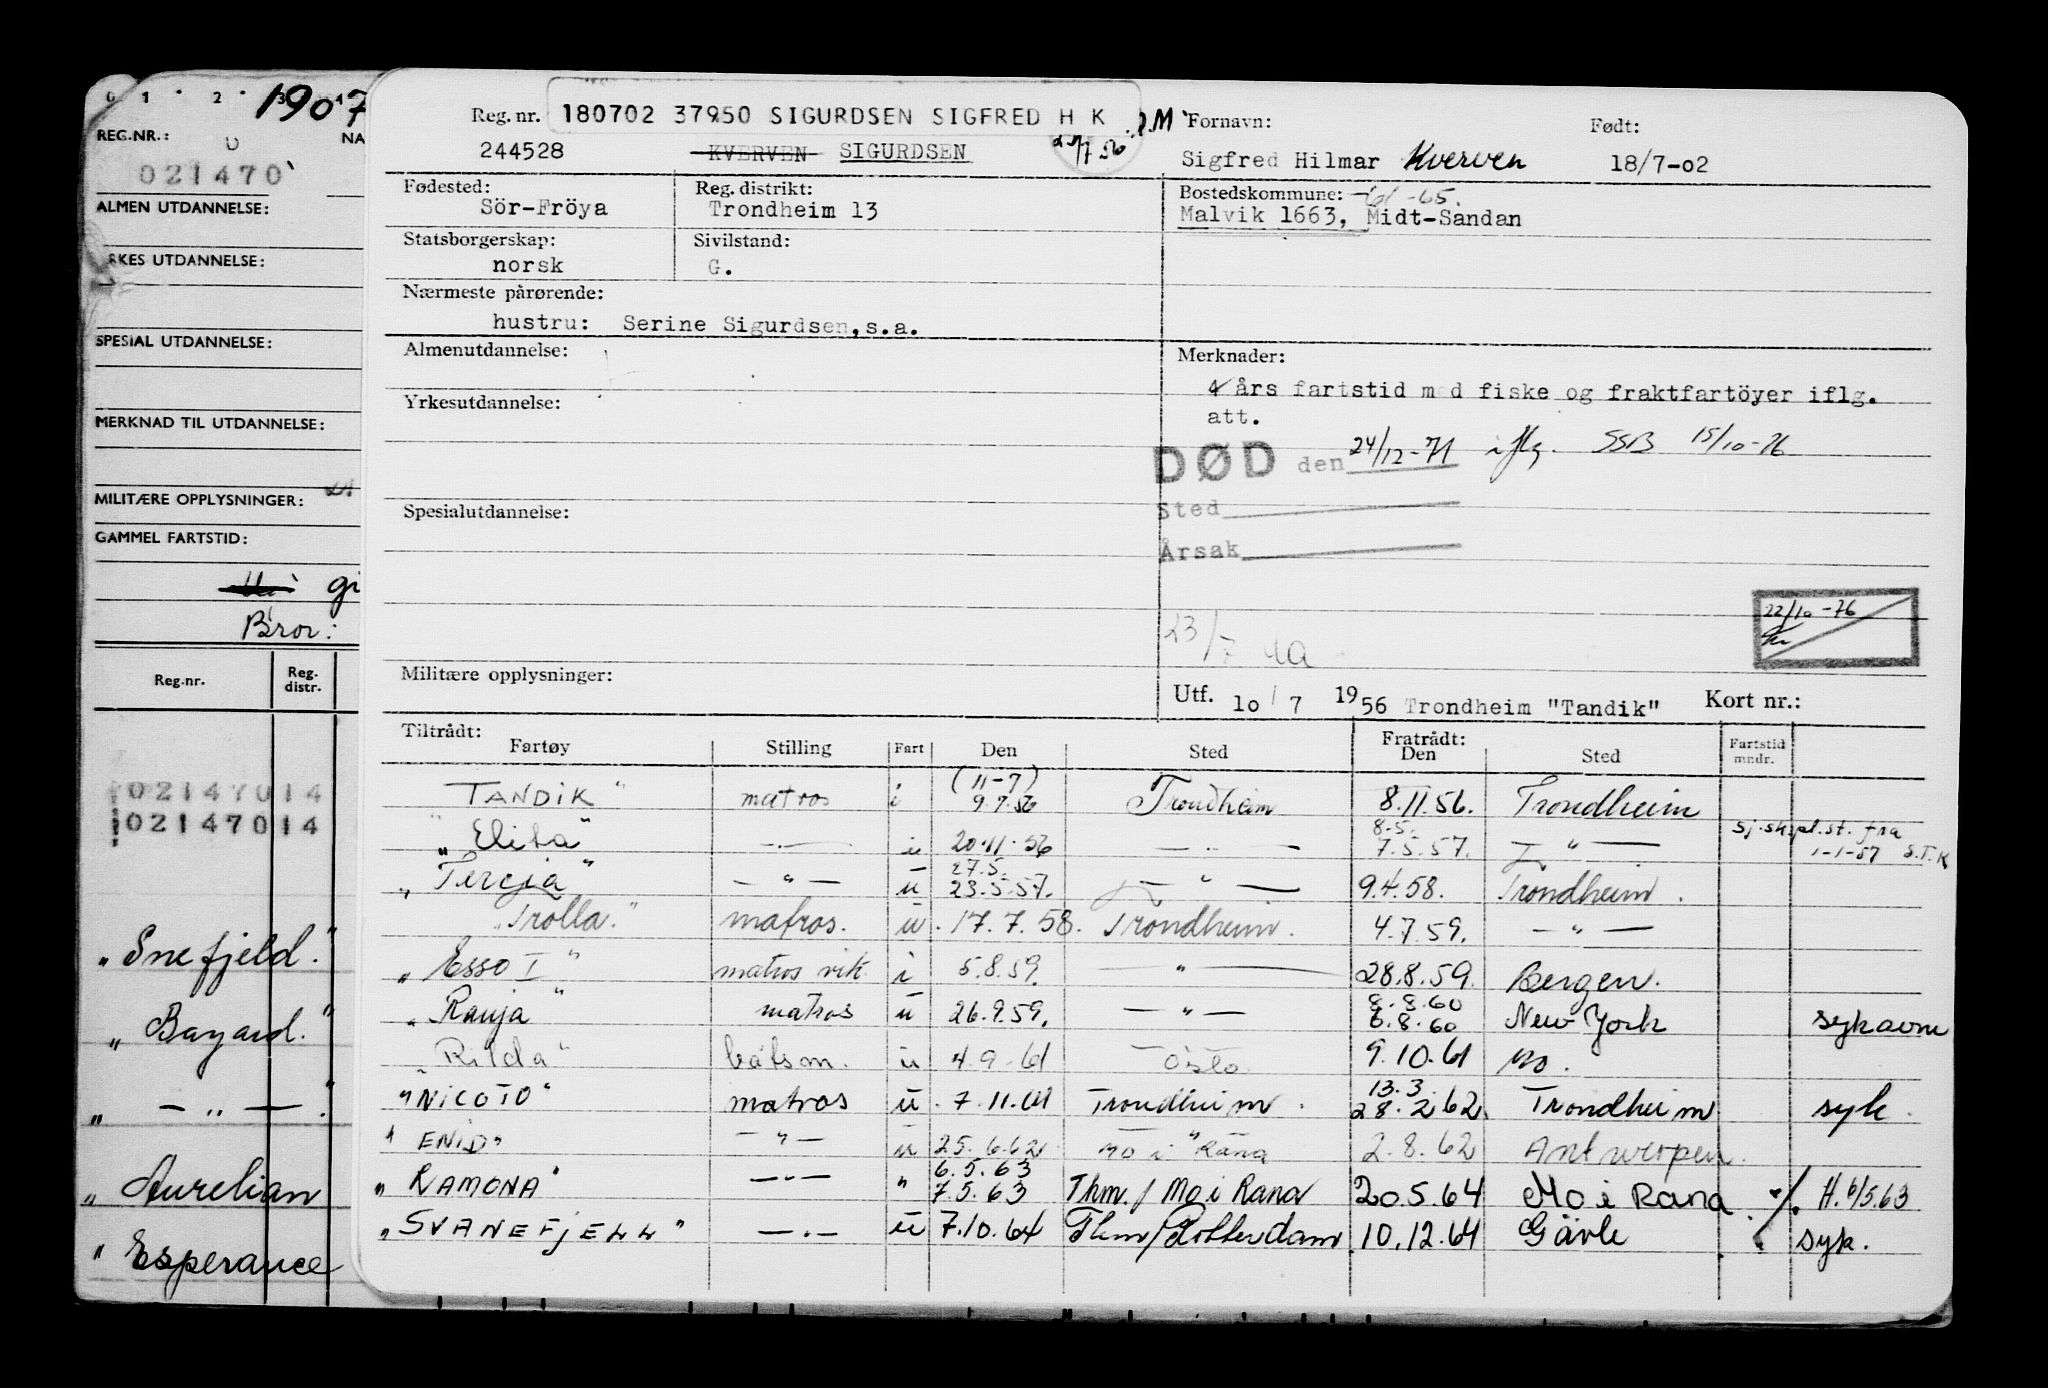 0 1 2 3 1907
REG.NR.: NA
021470
ALMEN UTDANNELSE:
RKES UTDANNELSE:
SPESIAL UTDANNELSE:
MERKNAD TIL UTDANNELSE:
MILITÆRE OPPLYSNINGER:
GAMMEL FARTSTID:
gi
Bror:
Reg.nr. Reg. distr.
02147014
02147014
"Snefjeld."
"Bayard."
" — " — ."
"Aurelian
"Esperance
Reg. nr. 180702 37950 SIGURDSEN SIGFRED H K
244528 KVERVEN SIGURDSEN 23/7 56
Fornavn: Født:
Sigfred Hilmar Kverven 18/7-02
Fødested: Reg. distrikt: Bostedskommune: -61-65.
Sör-Fröya Trondheim 13 Malvik 1663, Midt-Sandan
Statsborgerskap: Sivilstand:
norsk G.
Nærmeste pårørende:
hustru: Serine Sigurdsen,s.a.
Almenutdannelse: Merknader:
4 års fartstid med fiske og fraktfartöyer iflg.
att.
Yrkesutdannelse:
DØD den 24/12-71 iflg. SSB 15/10-76
Spesialutdannelse: Sted
Årsak
22/10-76
23/7
Militære opplysninger:
Utf. lo/7 1956 Trondheim "Tandik" Kort nr.:
Tiltrådt: Fratrådt:
Fartøy Stilling Fart Den Sted Den Sted Fartstid mndr.
(11-7)
TANDIK" matros i 9.7.56 Trondheim 8.11.56. Trondheim
8.5.
"Elita" —"— u 20.11.56 —"— 7.5.57. —"— sj.skpl.st. fra 1-1-57 S.T.K
27.5.
"Tercja" —"— u 23.5.57. —"— 9.4.58. Trondheim.
"Trolla." matros. u. 17.7.58. Trondheim. 4.7.59. —"—
"Esso I" matros vik. i 5.8.59. —"— 28.8.59. Bergen.
8.8.60
"Ranja" matros u 26.9.59. —"— 6.8.60 New York sykavm
"Rilda" båtsm. u 4.9-61 Oslo. 9.10.61 Mo.
13.3.
"NICOTO" matros u. 7.11.61 Trondheim. 28.2.62. Trondheim syk.
"ENID" —"— u 25.6.62 Mo i Rana 2.8.62 Antwerpen.
6.5.63
"RAMONA" —"— " 7.5.63 Thm./Mo i Rana 20.5.64 Mo i Rana ./. H. 6/5.63
"SVANEFJELL" —"— u 7.10.64 Thm/Rotterdam 10.12.64 Gävle syk.